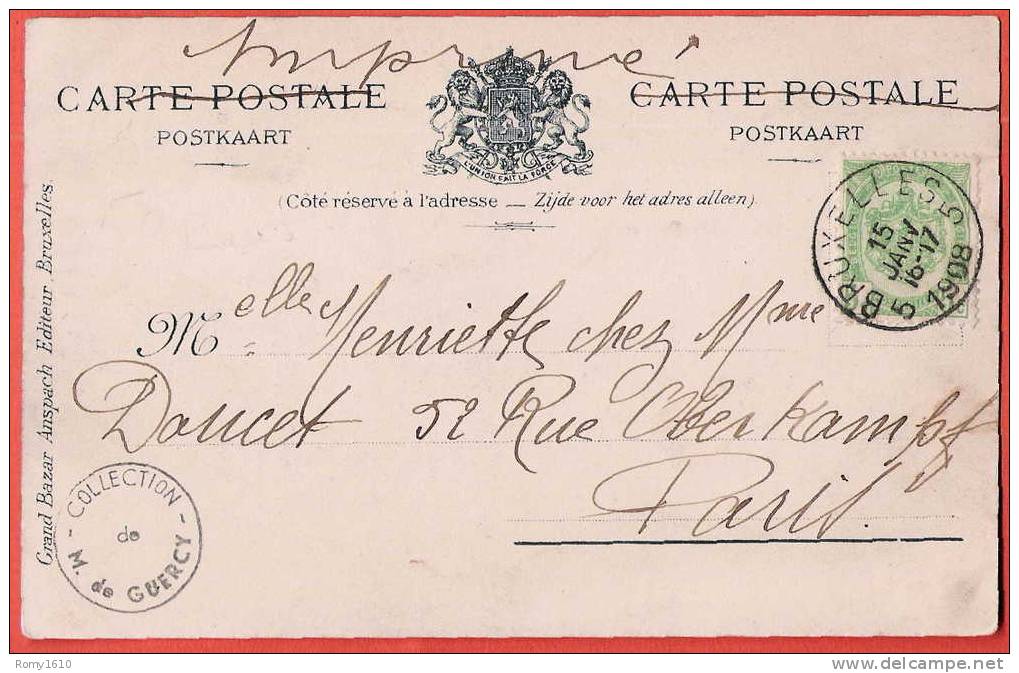 Imprimé
CARTE POSTALE
POSTKAART
L'UNION FAIT LA FORCE
CARTE POSTALE
POSTKAART
(Côté réservé à l'adresse — Zijde voor het adres alleen)
BRUXELLES 5
15
JANV
16-17
5 1908
Melle Henriette chez Mme
Doucet 52 Rue Oberkampf
Paris.
Grand Bazar Anspach Editeur Bruxelles.
- COLLECTION -
de
M. de GUERCY
Romy1610
delcampe.net